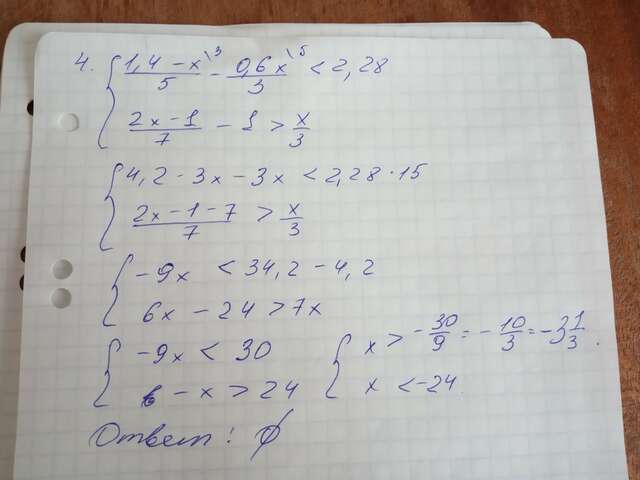 4. { (1,4 - x\3)/5 - (0,6x\5)/3 < 2,28
(2x - 1)/7 - 1 > x/3
{ 4,2 - 3x - 3x < 2,28 · 15
(2x - 1 - 7)/7 > x/3
{ -9x < 34,2 - 4,2
6x - 24 > 7x
{ -9x < 30
- x > 24
{ x > -30/9 = -10/3 = -3 1/3.
x < -24.
Ответ: ∅